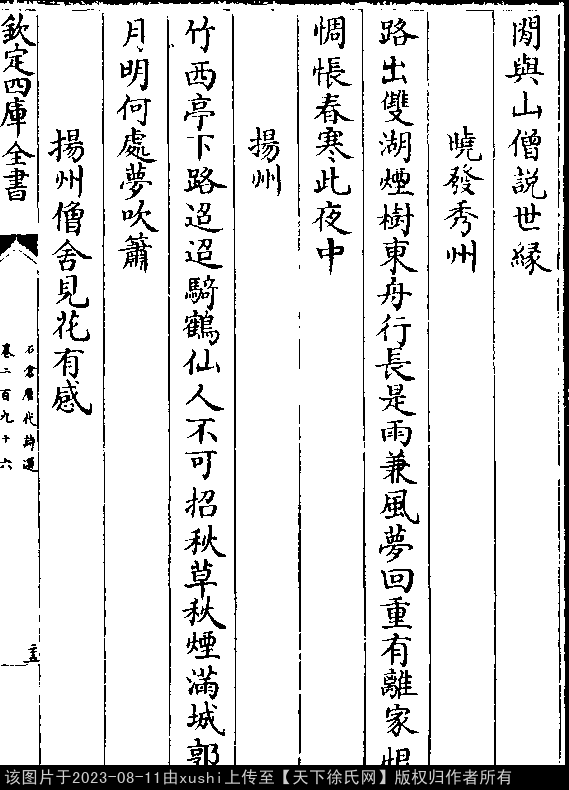 閒與山僧説世緣
曉發秀州
路出雙湖煙樹東舟行長是雨兼風夢回重有離家恨
惆悵春寒此夜中
揚州
竹西亭下路迢迢騎鶴仙人不可招秋草秋煙滿城郭
月明何處夢吹簫
揚州僧舍見花有感
欽定四庫全書
石倉歷代詩選
卷二百九十六
该图片于2023-08-11由xushi上传至【天下徐氏网】版权归作者所有